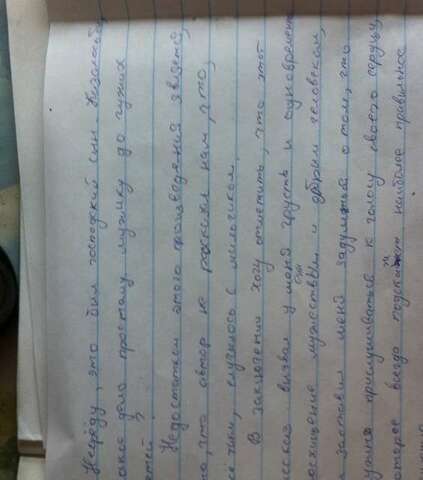 Нефёду, это был господский сын. Казалось бы,
акое дело простому мужику до чужих
етей?
Недостатком этого произведения является
о, что автор не рассказал нам, что,
се таки, случилось с мальчиком.
В заключении хочу отметить, что этот
ассказ вызвал у меня грусть и одновремен
осхищение мужественным и добрым человеком,
заставил меня задуматься о том, что
ужно прислушиваться к голосу своего сердца,
оторое всегда подскажет наиболее правильное